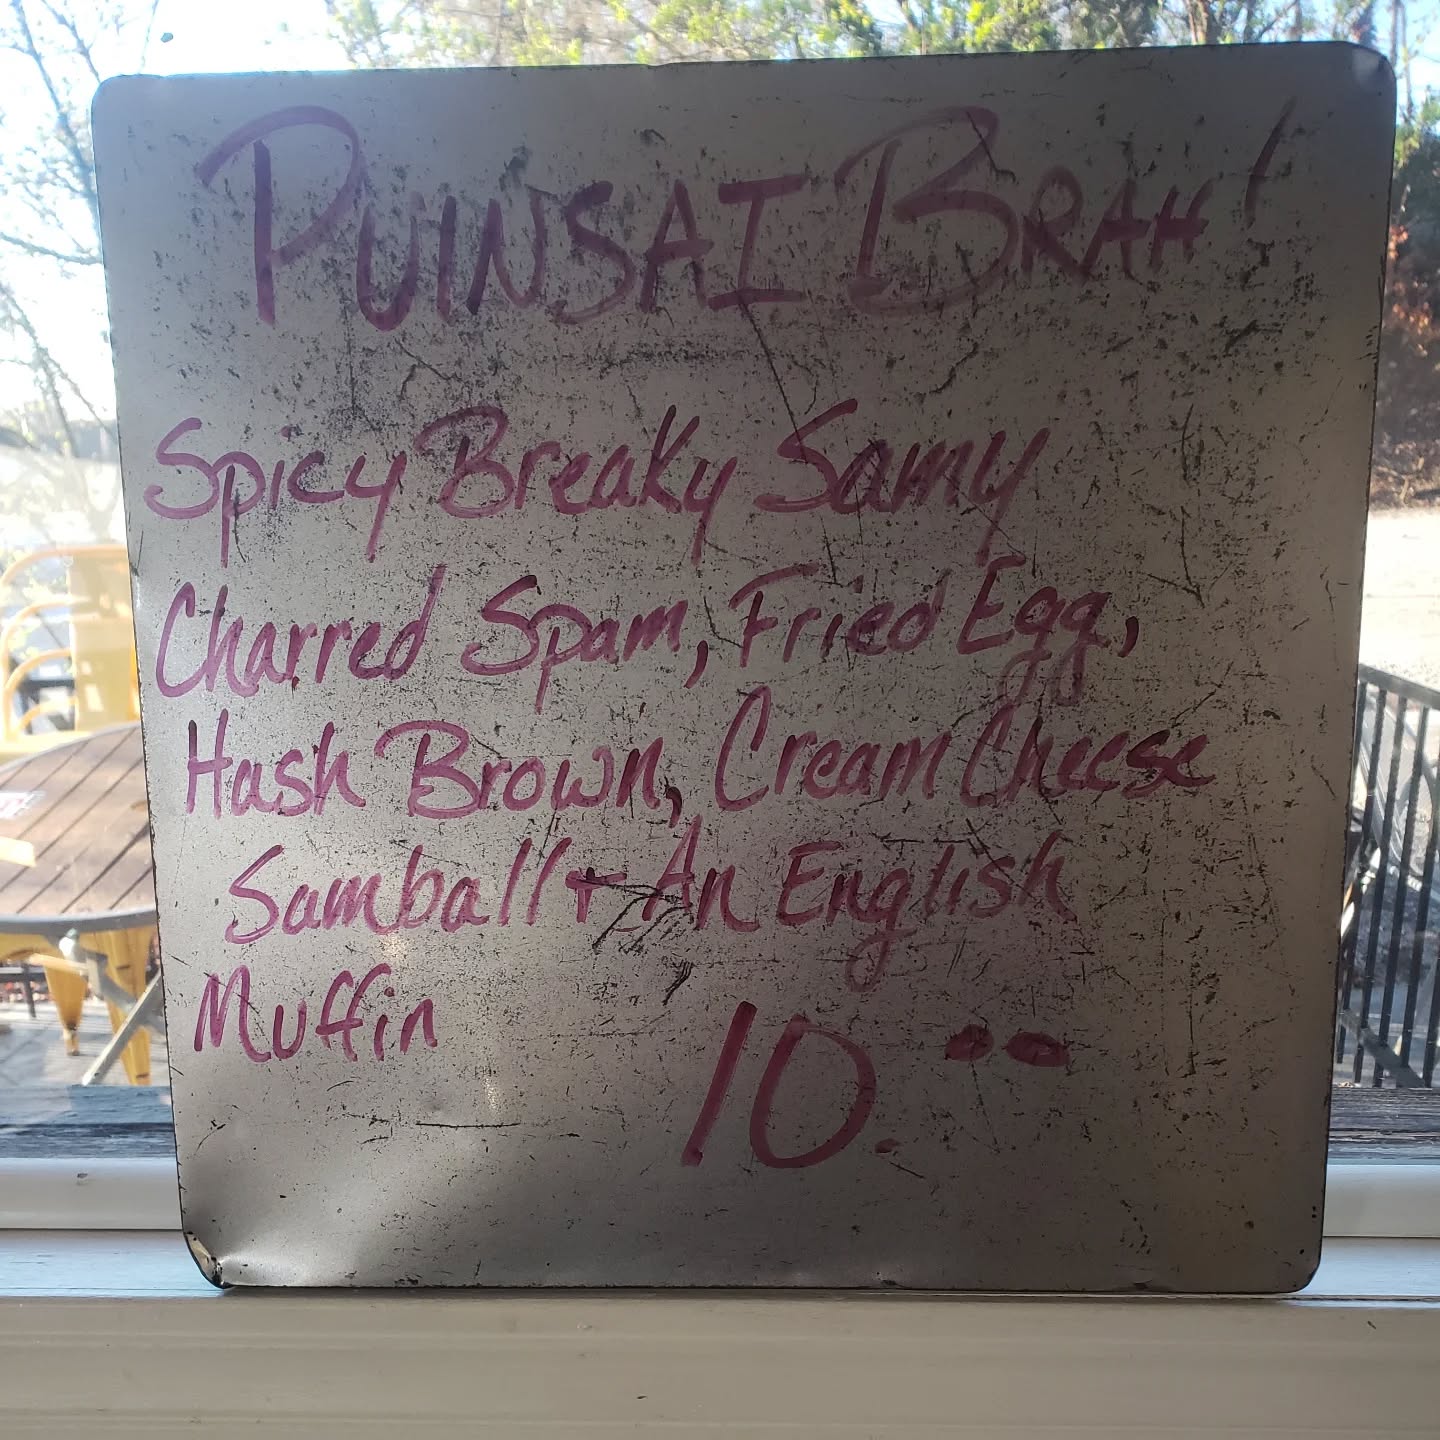 PUINSAI BRAH!
Spicy Breaky Samy
Charred Spam, Fried Egg,
Hash Brown, Cream Cheese
Samball + An English
Muffin
10.00